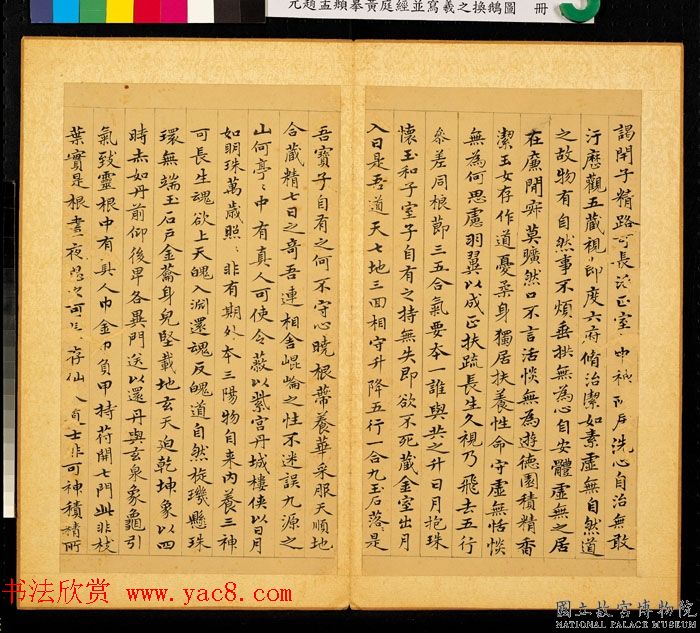 元趙孟頫摹黃庭經並寫羲之換鵝圖 冊
謁閉子精路可長 正室 中 戶洗心自治無敢
汙歷觀五藏視節度六府脩治潔如素虛無自然道
之故物有自然事不煩垂拱無為心自安體虛無之居
在廉閒寂莫曠然口不言活惔無為遊德園積精香
潔玉女存作道憂柔身獨居扶養性命守虛無恬惔
無為何思慮羽翼以成正扶疏長生久視乃飛去五行
參差同根節三五合氣要本一誰與共之升日月抱珠
懷玉和子室子自有之持無失即欲不死藏金室出月
入日是吾道天七地三回相守升降五行一合九玉石落是
吾寶子自有之何不守心曉根蔕養華采服天順地
合藏精七日之奇吾連相舍崐崙之性不迷誤九源之
山何亭〻中有真人可使令蔽以紫宮丹城樓俠以日月
如明珠萬歲照〻非有期外本三陽物自来內養三神
可長生魂欲上天魄入淵還魂反魄道自然旋璣懸珠
環無端玉石戶金籥身兒堅載地玄天迫乾坤象以四
時赤如丹前仰後卑各異門送以還丹與玄泉象龜引
氣致靈根中有真人巾金巾負甲持符開七門此非枝
葉實是根晝夜思之可 存仙人 士非可神積精所
书法欣赏
www.yac8.com
國立故宮博物院
NATIONAL PALACE MUSEUM